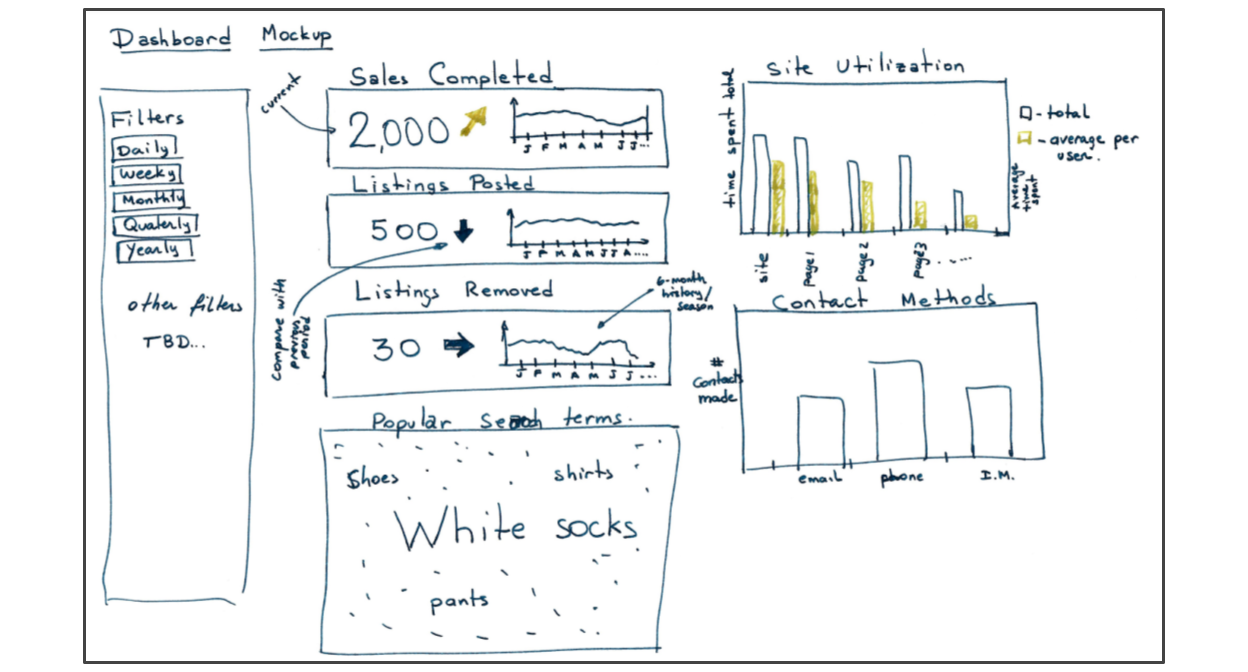 Dashboard Mockup
Filters
Daily
Weekly
Monthly
Quaterly
Yearly
other filters
TBD...
current
Sales Completed
2,000
J F M A M J J...
Listings Posted
500
J F M A M J J A....
compare with
previous
period
Listings Removed
30
6-month
history/
season
J F M A M J J ...
Popular Search terms.
Shoes
shirts
White socks
pants
Site Utilization
time spent total
- total
- average per
user.
average
time
spent
site
page1
page2
page3
.....
Contact Methods
#
Contacts
made
email
phone
I.M.